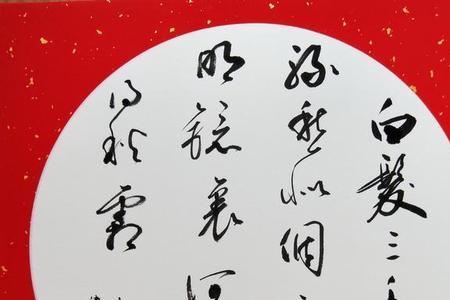 白髮三千
緣愁似個
明鏡裏何
得秋霜